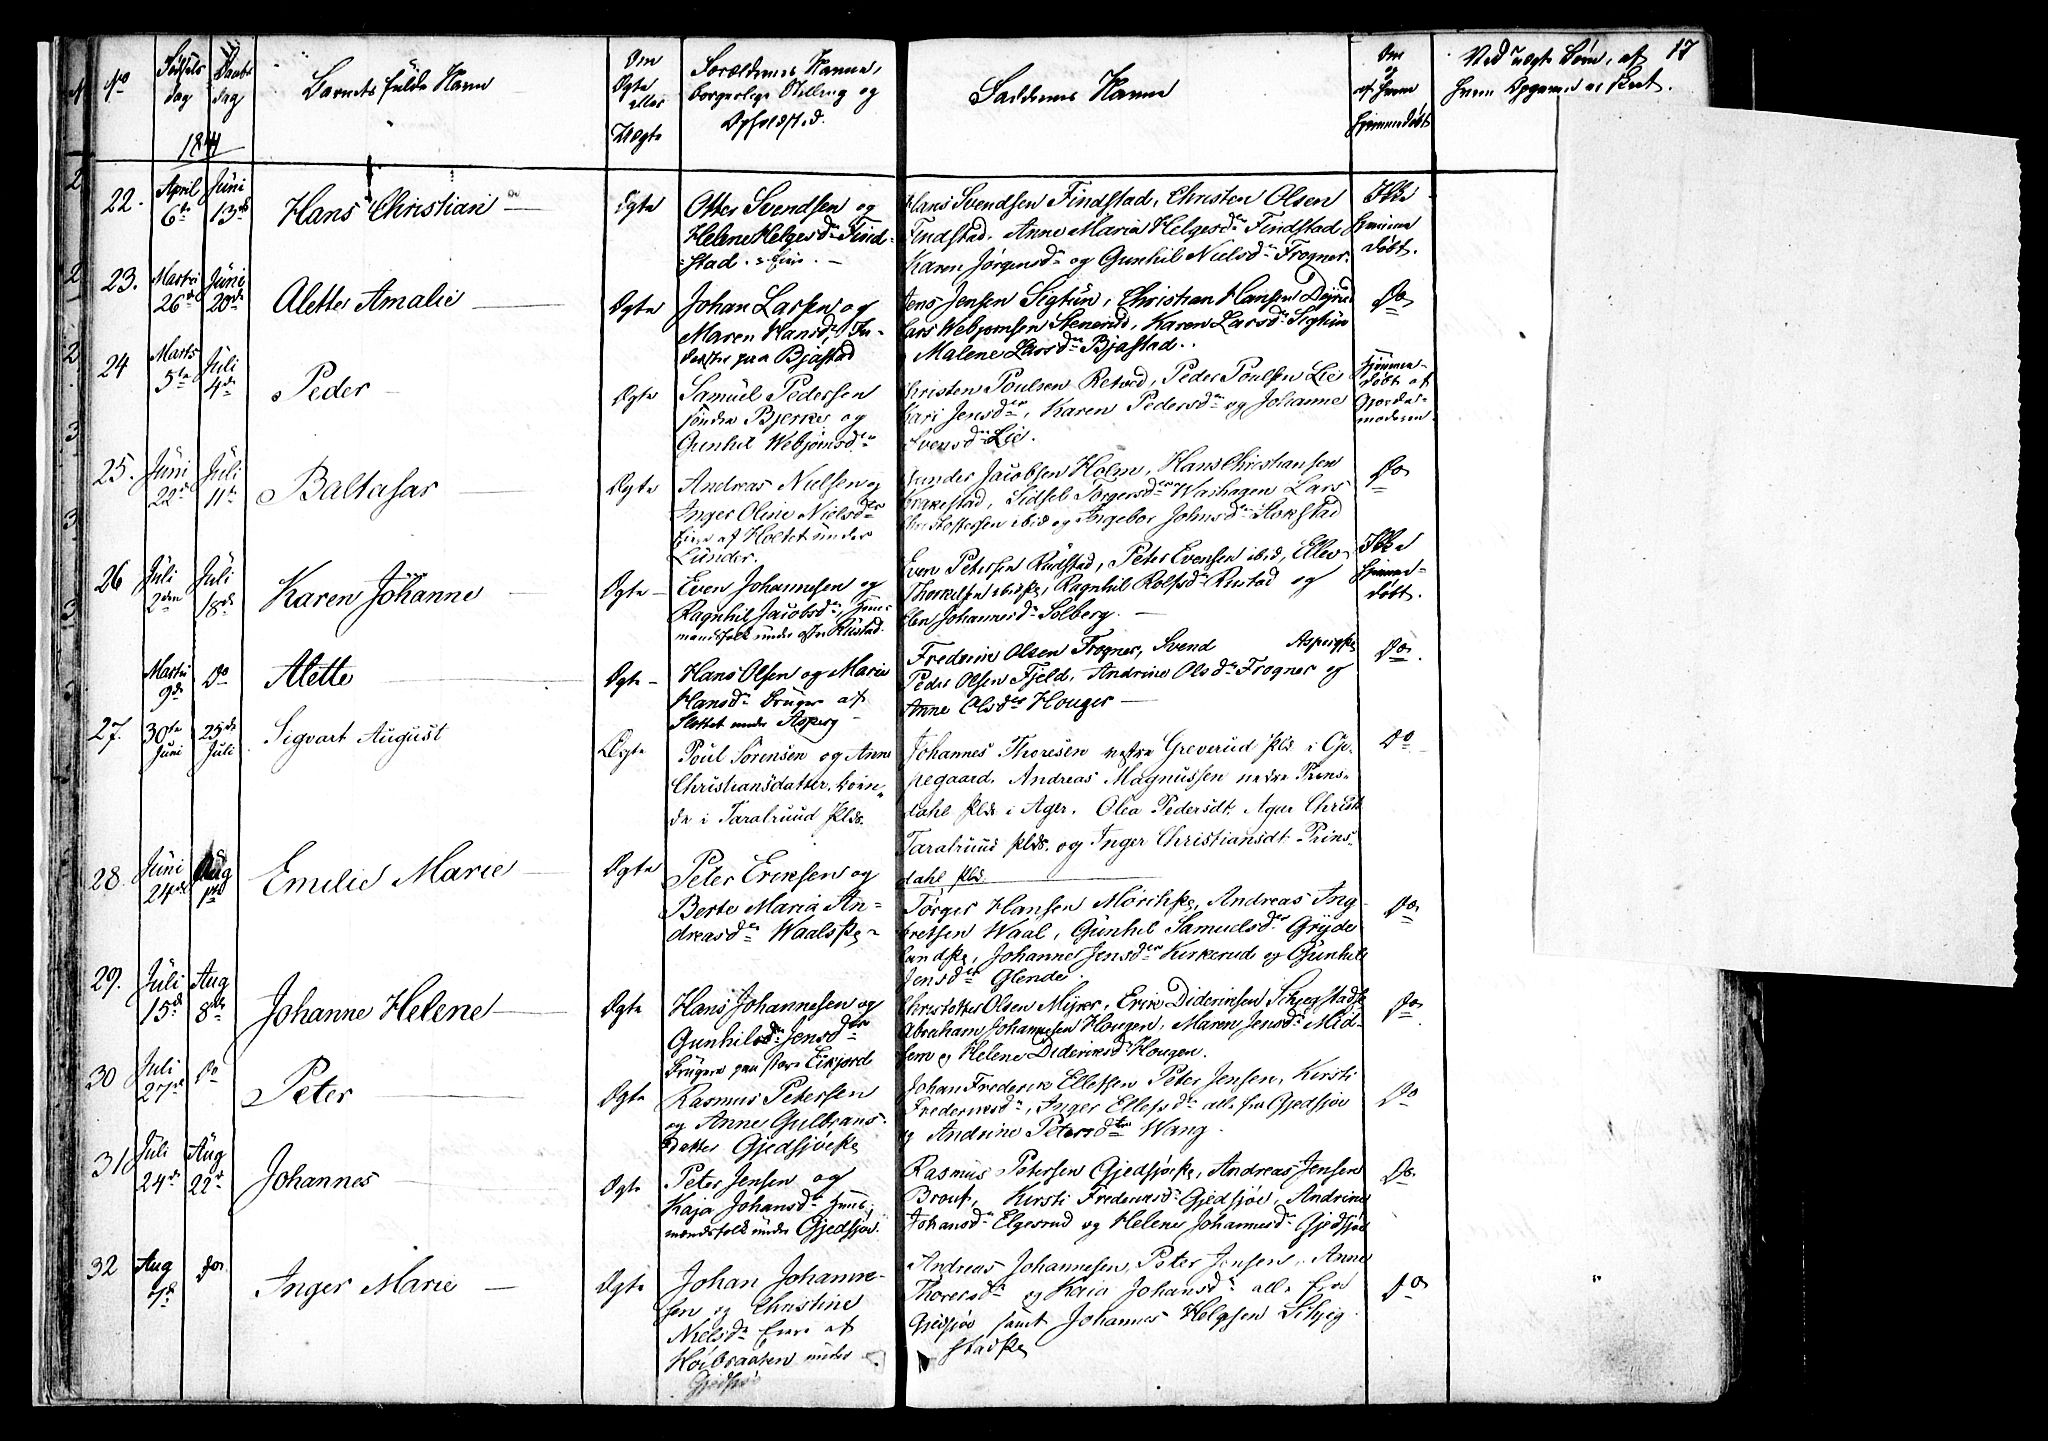 No
Fødsels
dag
Daabs
dag
Barnets fulde Navn
Om
Ægte
eller
Uægte
Forældrenes Navne,
borgerlige Stilling og
Opholdsted.
Faddernes Navne
Om
og
af hvem
hjemmedøbt
Ved uægte Børn, af
hvem Opgaven er skeet.
17
1841
22.
April
6te
Juni
13de
Hans Christian
Ægte
Otter Svendsen og
Helene Helgesdr Find-
stad. Eiere.
Hans Svendsen Findstad, Christen Olsen
Findstad, Anne Maria Helgesdr Findstad
Karen Jørgensdr og Gunhil Nielsdr Frogner.
Ikke
hjemme
døbt.
23.
Martii
26de
Juni
20de
Alette Amalie
Ægte
Johan Larsen og
Maren Hansdr, In-
derster paa Bjastad
Jens Jensen Sigtun, Christian Hansen
Lars Webjørnsen Stenerud, Karen Larsdr Sigtun
Malene Larsdr Bjastad.
Do
24
Marts
5te
Juli
4de
Peder
Ægte
Samuel Pedersen
søndre Bjerke og
Gunhil Webjørnsdr
Christen Poulsen Retved, Peder Poulsen Lie
Kari Jensdr, Karen Pedersdr og Johanne
Svensdr Lie.
Hjemme-
døbt af
Gjorde-
moderen.
25.
Juni
22de
Juli
11te
Baltasar
Ægte
Andreas Nielsen og
Inger Oline Nielsdr
Eiere af Holtet under
Lunder.
Gunder Jacobsen Holm, Hans Christiansen
Krakestad, Sidsel Torgersdr Waihagen Lars
Christoffersen ibid og Ingebor Johnsdr Stokstad
Do
26
Juli
2den
Juli
18de
Karen Johanne
Ægte
Even Johannesen og
Ragnhil Jacobsdr, Huus-
mandsfolk under østre Rustad.
Even Petersen Rudstad, Peter Evensen ibid, Ellev
Thorkelsen ibidske, Ragnhil Rolfsdr Rustad og
Elen Johannesdr Solberg.
Ikke
hjemme-
døbt.
Martii
9de
Do
Alette
Ægte
Hans Olsen og Marie
Hansdr Bruger af
Slottet under Asperg
Fredrine Olsen Frogner, Svend Aspergske
Peder Olsen Fjeld, Andrine Olsdr Frogner og
Anne Olsdr Houger
Do
27.
30te
Juni
25de
Juli
Sigvart August
Ægte
Poul Sørensen og Anne
Christiansdatter. Boen-
de i Taralruud Plds.
Johannes Thoresen vestre Greverud Plds i Op-
pegaard. Andreas Magnussen nedre Prins-
dahl Plds i Ager. Olea Pedersdt. Agnr Christ
Taralruud Plds. og Inger Christiansdt. Prins-
dahl Plds.
Do
28.
Juni
24de
Aug
1ste
Emilie Marie
Ægte
Peter Eriksen og
Berte Maria An-
dreasdr Waalske
Torger Hansen Mörchske, Andreas Ing-
bretsen Waal, Gunhil Samuelsdr Gryde
landske, Johanne Jensdr Kirkerud og Gunhil
Jensdr Glende.
Do
29.
Juli
15de
Aug
8de
Johanne Helene
Ægte
Hans Johannesen og
Gunhilsdr Jensdr
Brugere paa store Eikjord
Christoffer Olsen Myrer, Erik Dideriksen Schjegstadske
Abraham Johannesen Hougen, Maren Jensdr Mid-
sem og Helene Dideriksdr Hougen.
Do
30
Juli
27de
Do
Peter
Ægte
Rasmus Petersen
og Anne Gulbrans-
datter Gjedsjøeske
Johan Frederik Ellefsen Peter Jensen, Kirsti
Frederiksdr, Inger Ellefsdr alle fra Gjedsjøe
og Andrine Petersdtr Wang.
Do
31
Juli
24de
Aug
22de
Johannes
Ægte
Peter Jensen og
Kaja Johansdr Huus-
mandsfolk under Gjedsjøe.
Rasmus Petersen Gjedsjøeske, Andreas Jensen
Kirsti Frederiksdr Gjedsjøe, Andrine
Johansdr Elgesrud og Helene Johannesdr Gjedsjøe
Do
32
Aug
Do
Inger Marie
Ægte
Johan Johanne-
sen og Christine
Nielsdr Eiere af
Høibraaten under
Gjedsjøe
Andreas Johannesen, Peter Jensen, Anne
Thoresdr og Kaia Johansdr alle fra
Gjedsjøe samt Johannes Helgesen Schjeg
stadske
Do